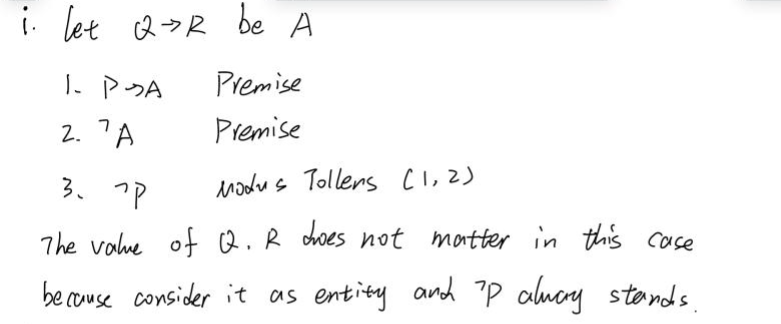 i. let Q→R be A
1. P→A Premise
2. ¬A Premise
3. ¬P Modus Tollens (1,2)
The value of Q. R does not matter in this case
because consider it as entity and ¬P alway stands.